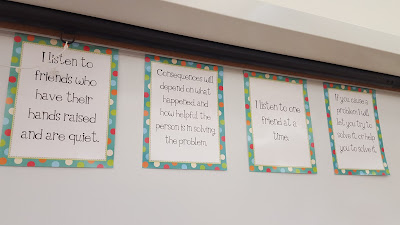 I listen to
friends who
have their
hands raised
and are quiet.
Consequences will
depend on what
happened, and
how helpful the
person is in solving
the problem.
I listen to one
friend at a
time.
If you cause a
problem I will
let you try to
solve it, or help
you to solve it.